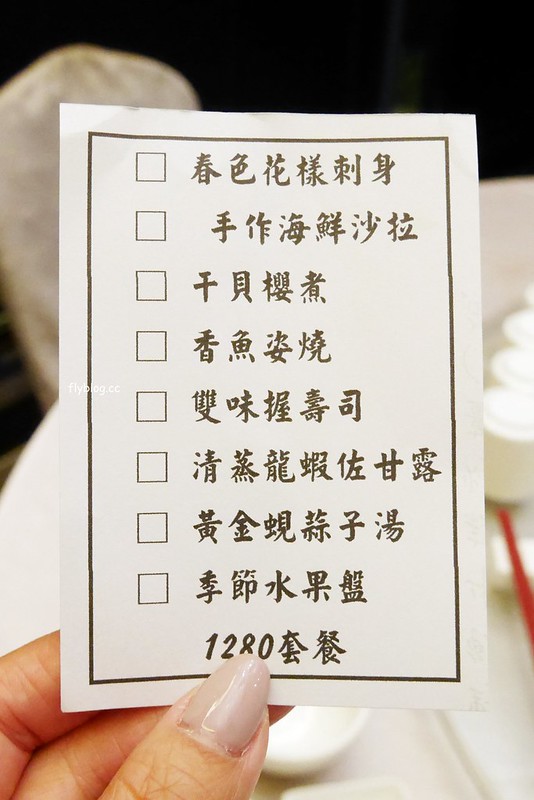 春色花樣刺身
手作海鮮沙拉
干貝櫻煮
香魚姿燒
flyblog.cc
雙味握壽司
清蒸龍蝦佐甘露
黃金蜆蒜子湯
季節水果盤
1280套餐